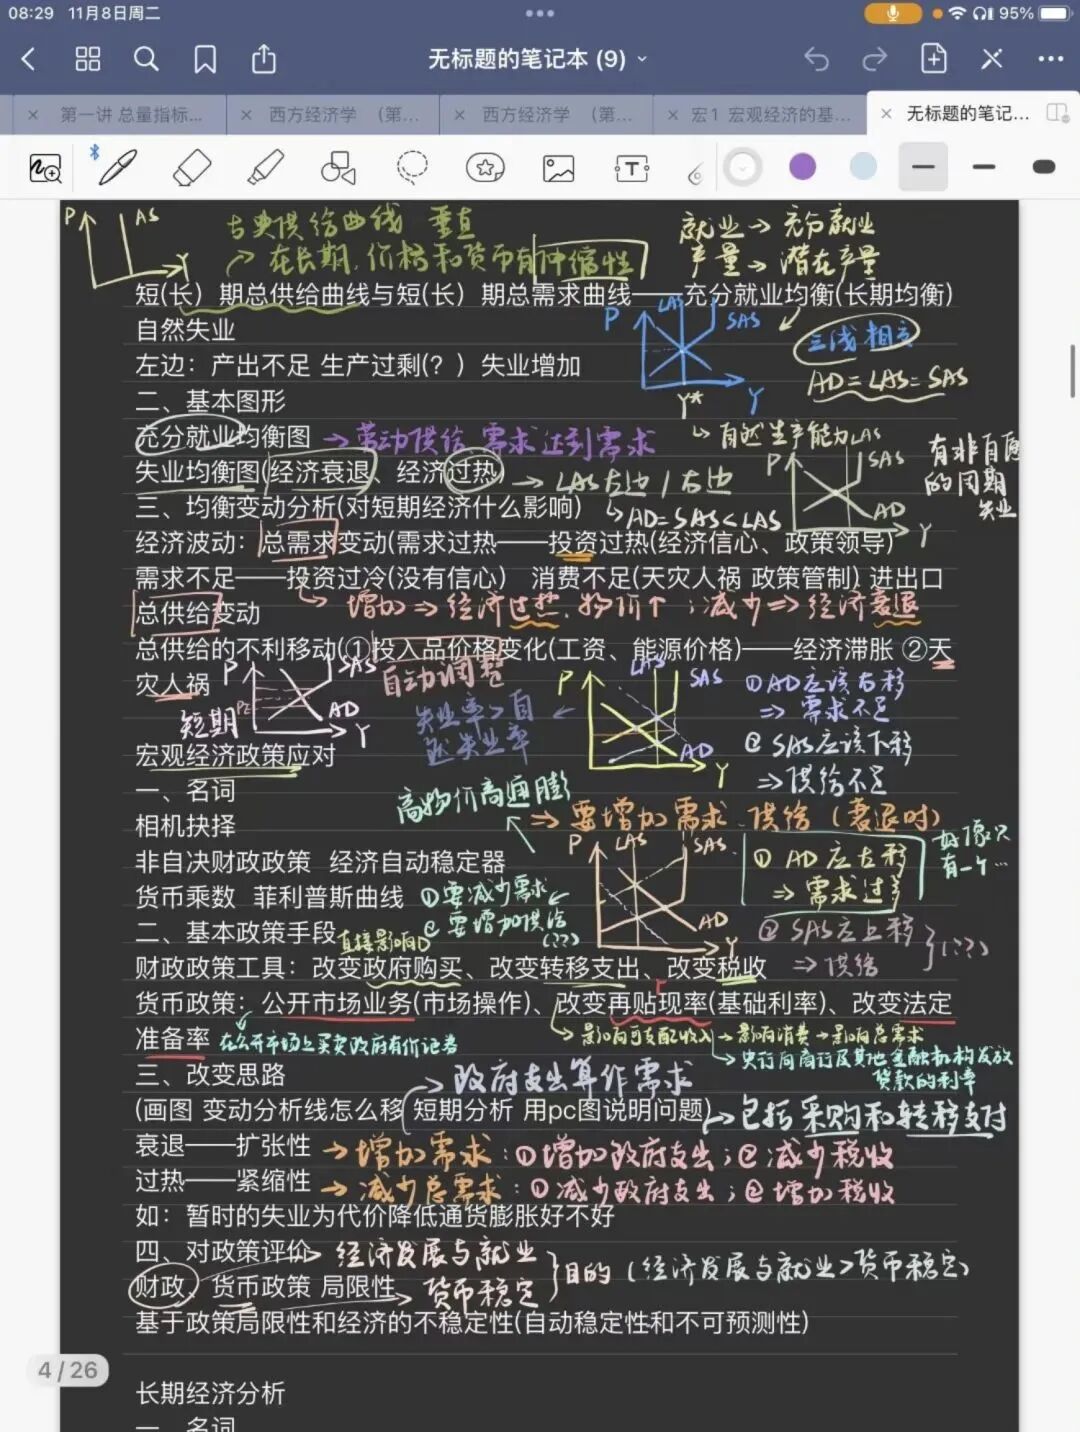 08:29 11月8日周二
95%
无标题的笔记本 (9)
第一讲 总量指标...
西方经济学 (第...
西方经济学 (第...
宏1 宏观经济的基...
无标题的笔记...
P AS Y
古典供给曲线 垂直
→在长期,价格和货币有伸缩性
就业→充分就业
产量→潜在产量
短(长)期总供给曲线与短(长)期总需求曲线——充分就业均衡(长期均衡)
自然失业
P LAS SAS Y* Y
三线相交
AD=LAS=SAS
左边:产出不足 生产过剩(?)失业增加
二、基本图形
→自然生产能力
充分就业均衡图
→劳动供给 需求达到需求
失业均衡图(经济衰退、经济过热)
→LAS左边/右边
→AD=SAS<LAS
P LAS SAS AD Y
有非自愿的周期失业
三、均衡变动分析(对短期经济什么影响)
经济波动:总需求变动(需求过热——投资过热(经济信心、政策领导)
需求不足——投资过冷(没有信心) 消费不足(天灾人祸 政策管制) 进出口
→增加⇒经济过热,物价↑;减少⇒经济衰退
总供给变动
总供给的不利移动(①投入品价格变化(工资、能源价格)——经济滞胀 ②天
灾人祸
自动调整
短期
P SAS AD Y
失业率>自然失业率
P LAS SAS AD Y
①AD应该右移
⇒需求不足
②SAS应该下移
⇒供给不足
宏观经济政策应对
一、名词
高物价高通膨
⇒要增加需求 供给(衰退时)
相机抉择
P LAS SAS AD Y
①AD应左移
⇒需求过多
好像只有一个...
非自决财政政策 经济自动稳定器
货币乘数 菲利普斯曲线
①要减少需求
②要增加供给(??)
②SAS应上移
⇒供给
(??)
二、基本政策手段
直接影响D
财政政策工具:改变政府购买、改变转移支出、改变税收
货币政策:公开市场业务(市场操作)、改变再贴现率(基础利率)、改变法定
准备率
在公开市场上买卖政府有价证券
→影响可支配收入→影响消费→影响总需求
→央行向商行及其他金融机构发放贷款的利率
三、改变思路
→政府支出算作需求
(画图 变动分析线怎么移 短期分析 用pc图说明问题)
→包括采购和转移支付
衰退——扩张性
→增加需求:①增加政府支出;②减少税收
过热——紧缩性
→减少总需求:①减少政府支出;②增加税收
如:暂时的失业为代价降低通货膨胀好不好
四、对政策评价
→经济发展与就业
财政、货币政策 局限性
→货币稳定
目的(经济发展与就业>货币稳定)
基于政策局限性和经济的不稳定性(自动稳定性和不可预测性)
4 / 26
长期经济分析
一、名词